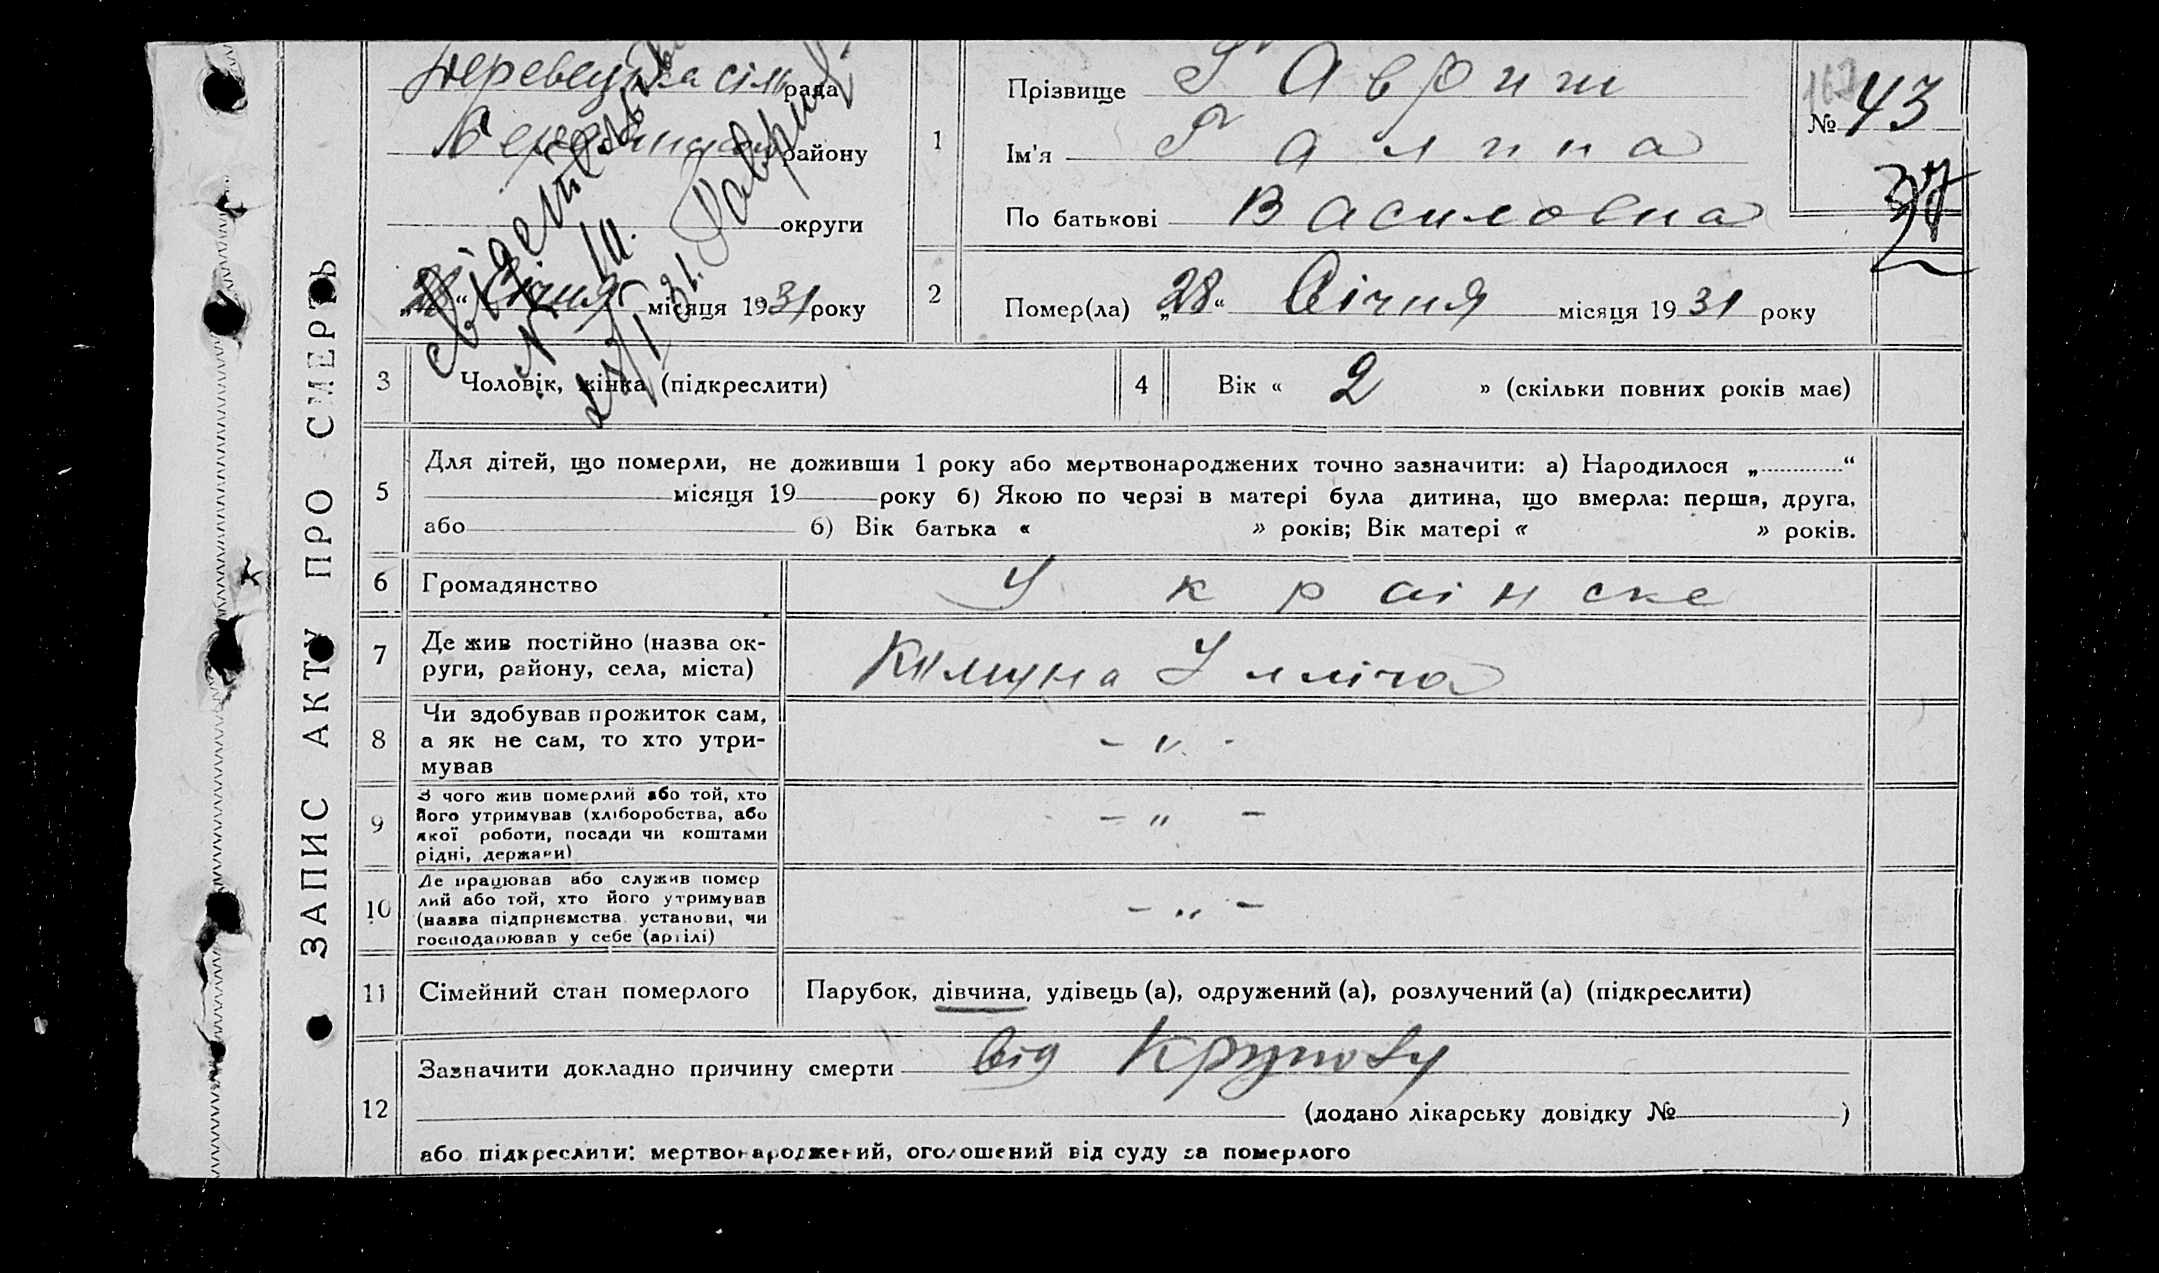 ЗАПИС АКТУ ПРО СМЕРТЬ
рада
району
округи
„28“ Січня місяця 1931 року
1
Прізвище Гавриш
Ім'я Галина
По батькові Василовна
№ 43
37
2
Помер(ла) „28“ Січня місяця 1931 року
3
Чоловік, жінка (підкреслити)
4
Вік « 2 » (скільки повних років має)
5
Для дітей, що померли, не доживши 1 року або мертвонароджених точно зазначити: а) Народилося „ “
місяця 19 року б) Якою по черзі в матері була дитина, що вмерла: перша, друга,
або б) Вік батька « » років; Вік матері « » років.
6
Громадянство
Украінске
7
Де жив постійно (назва ок-
руги, району, села, міста)
Комуна Ілліча
8
Чи здобував прожиток сам,
а як не сам, то хто утри-
мував
- " -
9
З чого жив померлий або той, хто
його утримував (хліборобства, або
якої роботи, посади чи коштами
рідні, держави)
- " -
10
Де працював або служив помер
лий або той, хто його утримував
(назва підприємства установи, чи
господарював у себе (артілі)
- " -
11
Сімейний стан померлого
Парубок, дівчина, удівець (а), одружений (а), розлучений (а) (підкреслити)
12
Зазначити докладно причину смерти від Крупозу
(додано лікарську довідку № )
або підкреслити: мертвонароджений, оголошений від суду за померлого